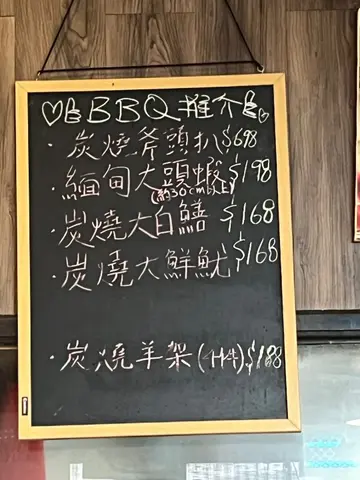 BBQ推介
·炭燒斧頭扒$698
·緬甸大頭蝦$198
(約30cm以上)
·炭燒大白鱔 $168
·炭燒大鮮魷$168
·炭燒羊架(4件)$188